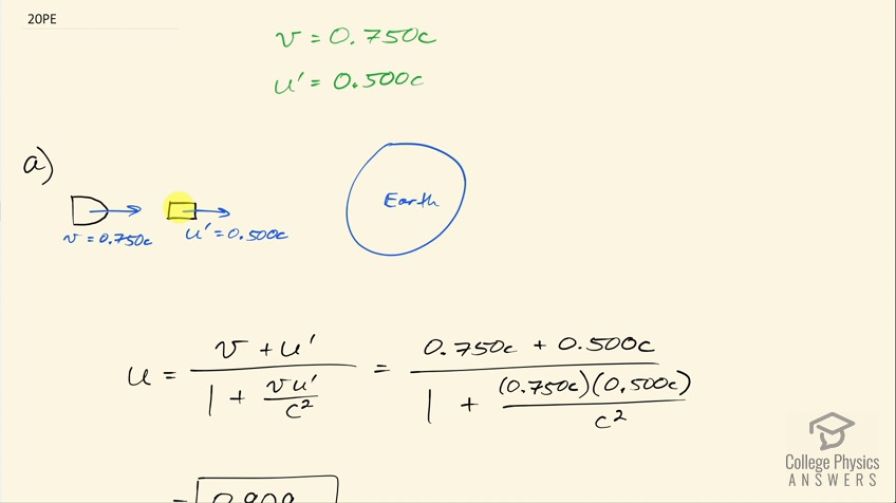 20PE
v = 0.750c
u' = 0.500c
a)
Earth
v = 0.750c
u' = 0.500c
u = (v + u') / (1 + vu'/c²) = (0.750c + 0.500c) / (1 + (0.750c)(0.500c)/c²)
= 0.909
College Physics
ANSWERS